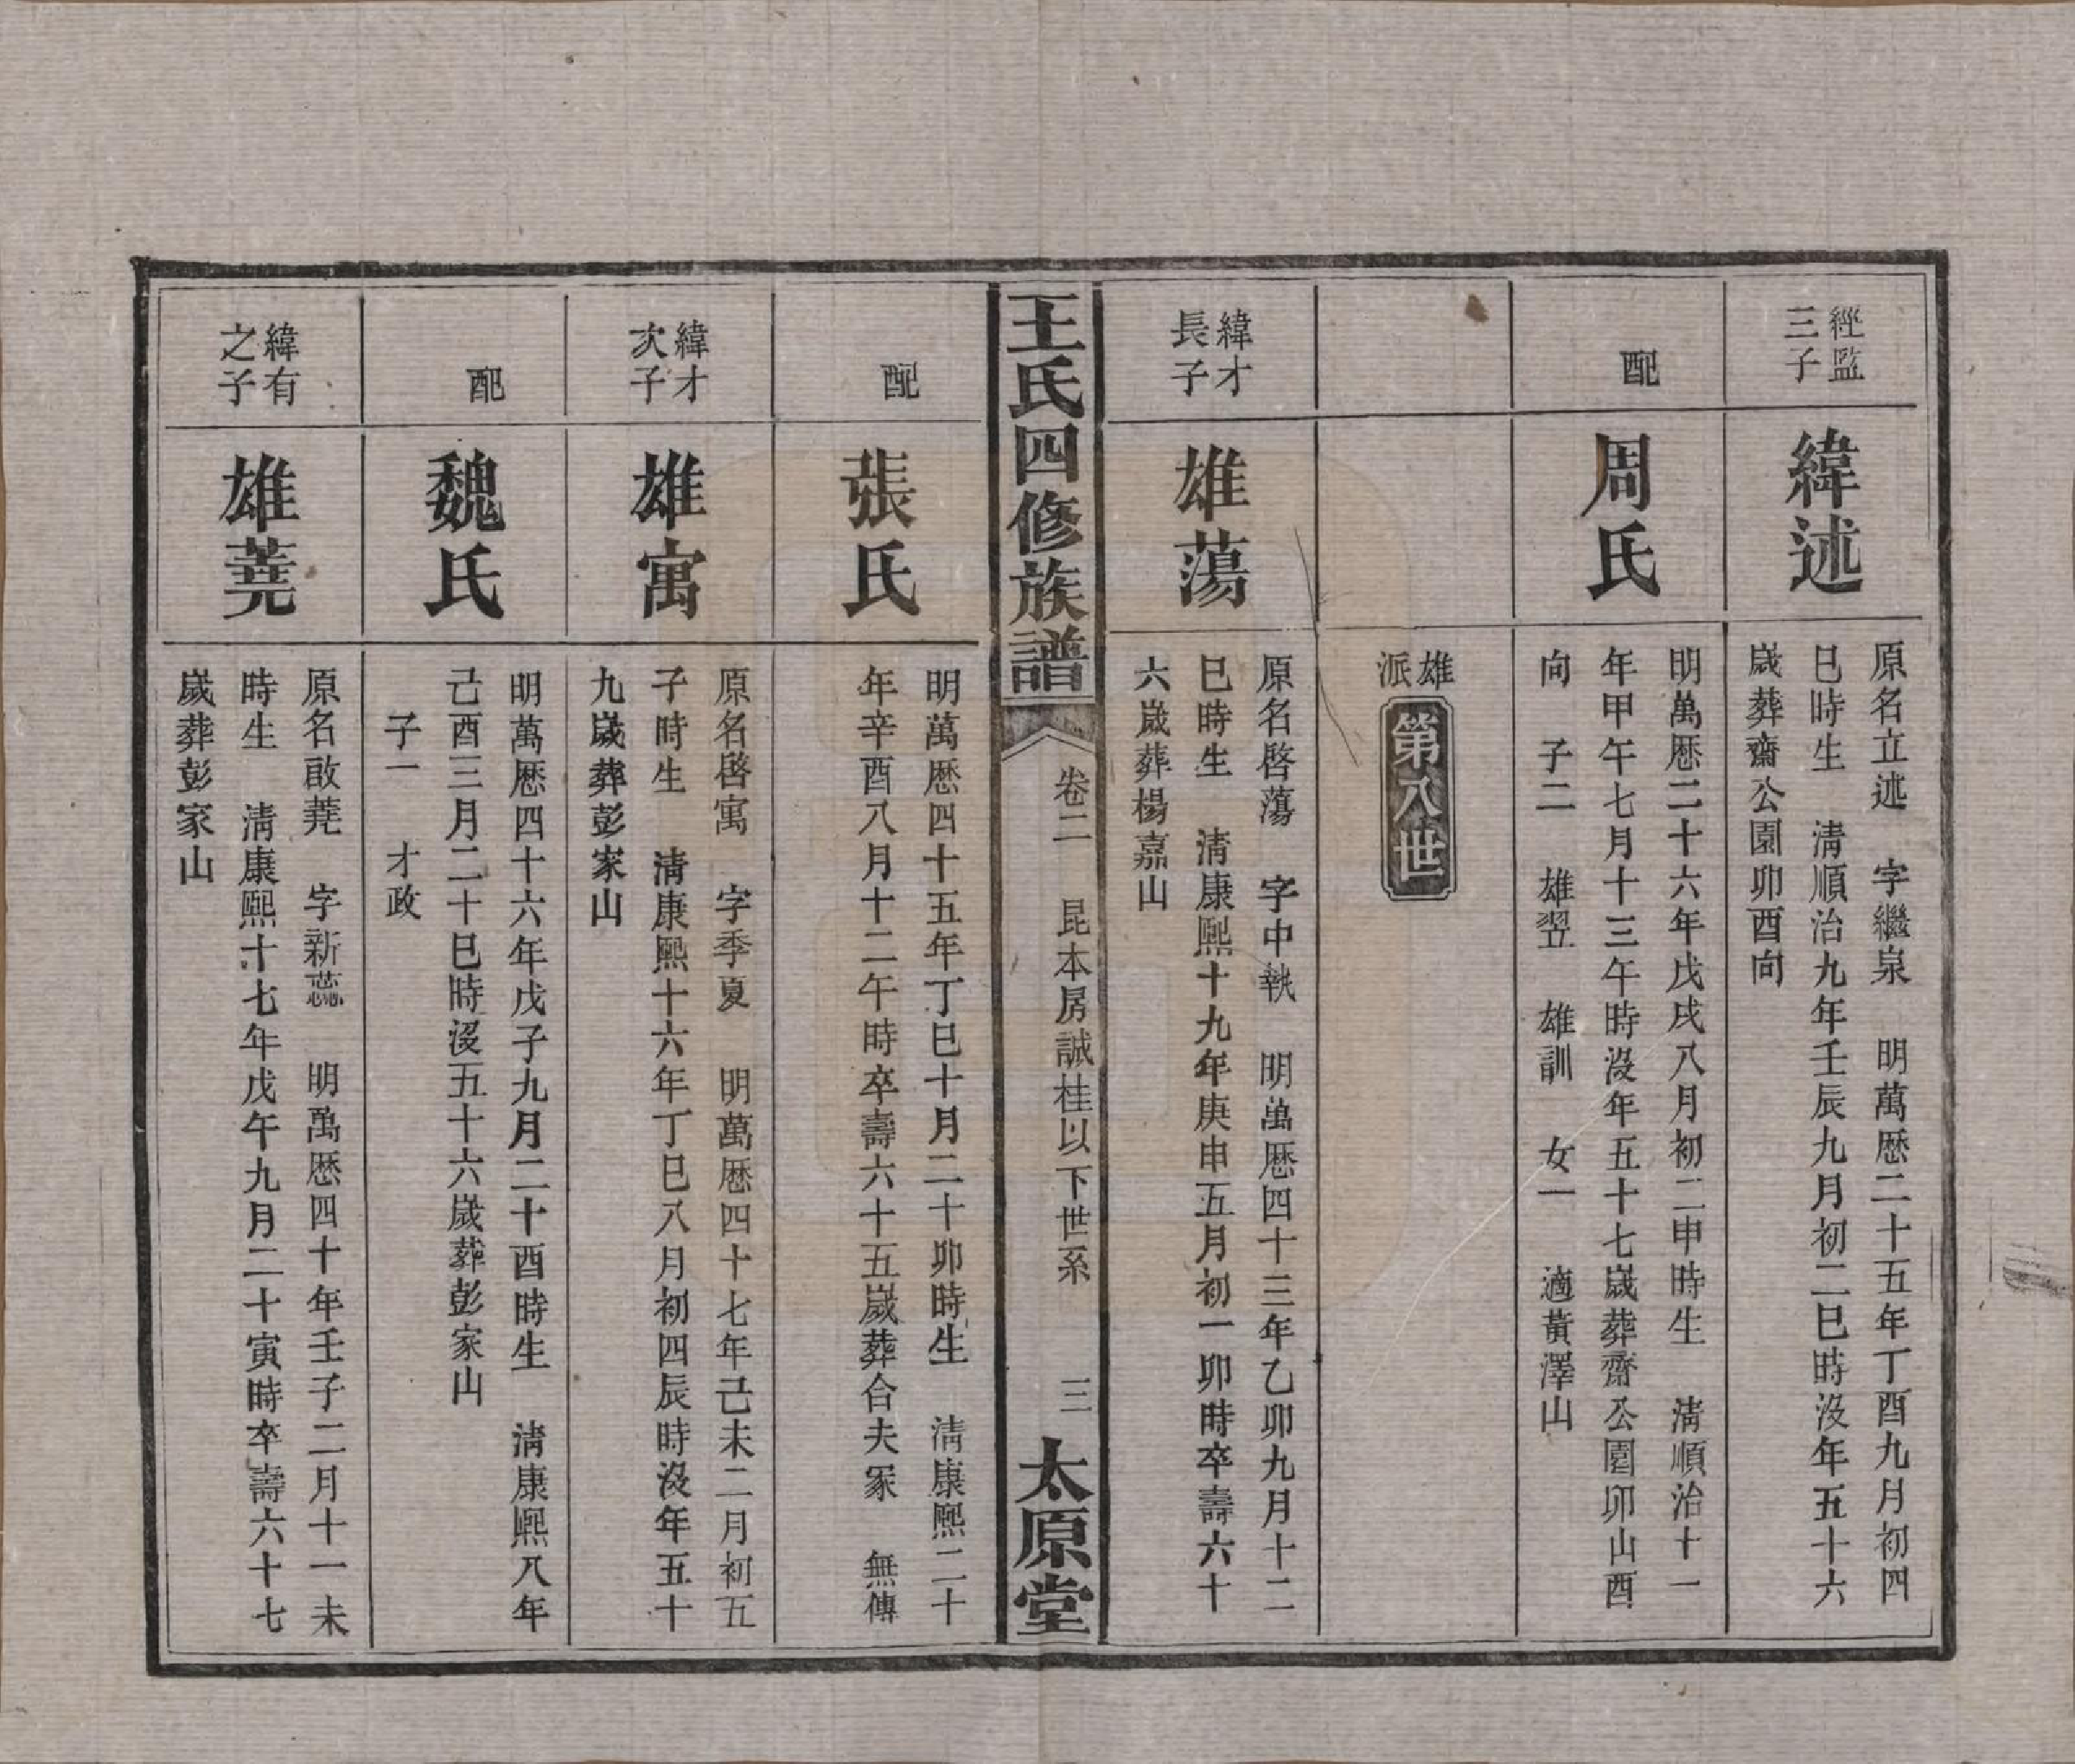 經監
三子
緯述
原名立述　字繼泉　明萬歷二十五年丁酉九月初四
巳時生　清順治九年壬辰九月初二巳時沒年五十六
歲葬齋公園卯酉向
配
周氏
明萬歷二十六年戊戌八月初二申時生　清順治十一
年甲午七月十三午時沒年五十七歲葬齋公園卯山酉
向　子二　雄翌　雄訓　女一　適黃澤山
雄派
第八世
緯才
長子
雄蕩
原名啓蕩　字中執　明萬歷四十三年乙卯九月十二
巳時生　清康熙十九年庚申五月初一卯時卒壽六十
六歲葬楊嘉山
王氏四修族譜
卷二　昆本房誠桂以下世系　三
太原堂
配
張氏
明萬歷四十五年丁巳十月二十卯時生　清康熙二十
年辛酉八月十二午時卒壽六十五歲葬合夫冢　無傳
緯才
次子
雄寓
原名啓寓　字季夏　明萬歷四十七年己未二月初五
子時生　清康熙十六年丁巳八月初四辰時沒年五十
九歲葬彭家山
配
魏氏
明萬歷四十六年戊子九月二十酉時生　清康熙八年
己酉三月二十巳時沒五十六歲葬彭家山
子一　才政
緯有
之子
雄蕘
原名啟蕘　字新蕊　明萬歷四十年壬子二月十一未
時生　清康熙十七年戊午九月二十寅時卒壽六十七
歲葬彭家山